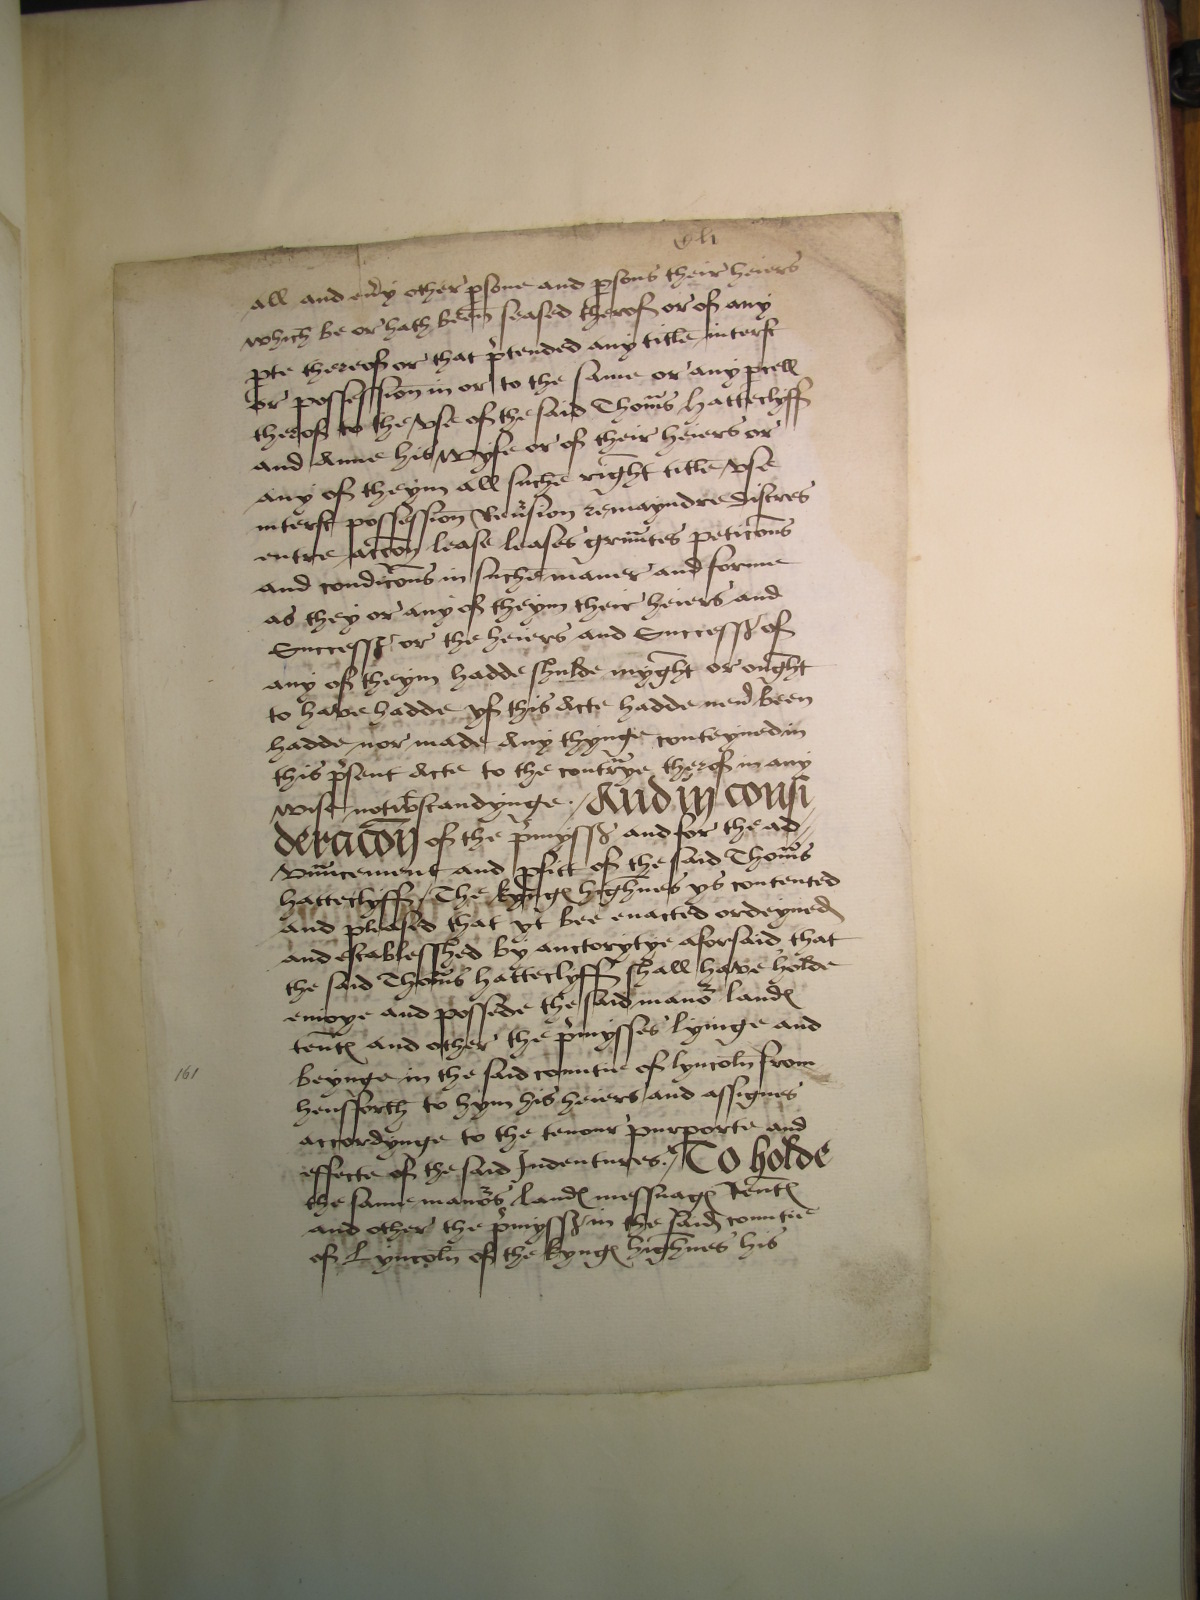 all and eu'y other p'sone and p'sons their heiers
which be or hath been seased therof or of any
p'te thereof or that p'tended any title interst
or possession in or to the same or any p'cell
therof to the vse of the said Thom's hatteclyff
and Anne his wyfe or of their heiers or
any of theym all suche right title vse
interst possession Reu'sion remayndre distres
entre acc'on lease leases graūtes petic'ons
and condic'ons in suche man'er and forme
as they or any of theym their heiers and
Success' or the heiers and Success' of
any of theym hadde shulde myght or ought
to have hadde yf this Acte hadde neu' been
hadde nor made Any thynge conteyned in
this p'sent Acte to the contr'ye therof in any
wise notw'standynge / And in consi
derac'on of the p'myss' and for the ad
vaūcement and p'fitt of the said Thom's
hatteclyff / The kyng' highnes ys contented
and pleased that yt bee enacted ordeyned
and establesshed by auctorytye aforsaid that
the said Thom's hatteclyff shall have holde
enioye and possede the said man'or land'
ten't' and other the p'mysses lyinge and
beynge in the said countie of lyncoln from
hensforth to hym his heiers and assignes
accordynge to the tenour purporte and
effecte of the said Indentures / To holde
the same man'ors land' messuag' ten't'
and other the p'myss' in the said countie
of Lyncoln of the kyng' highnes his
161